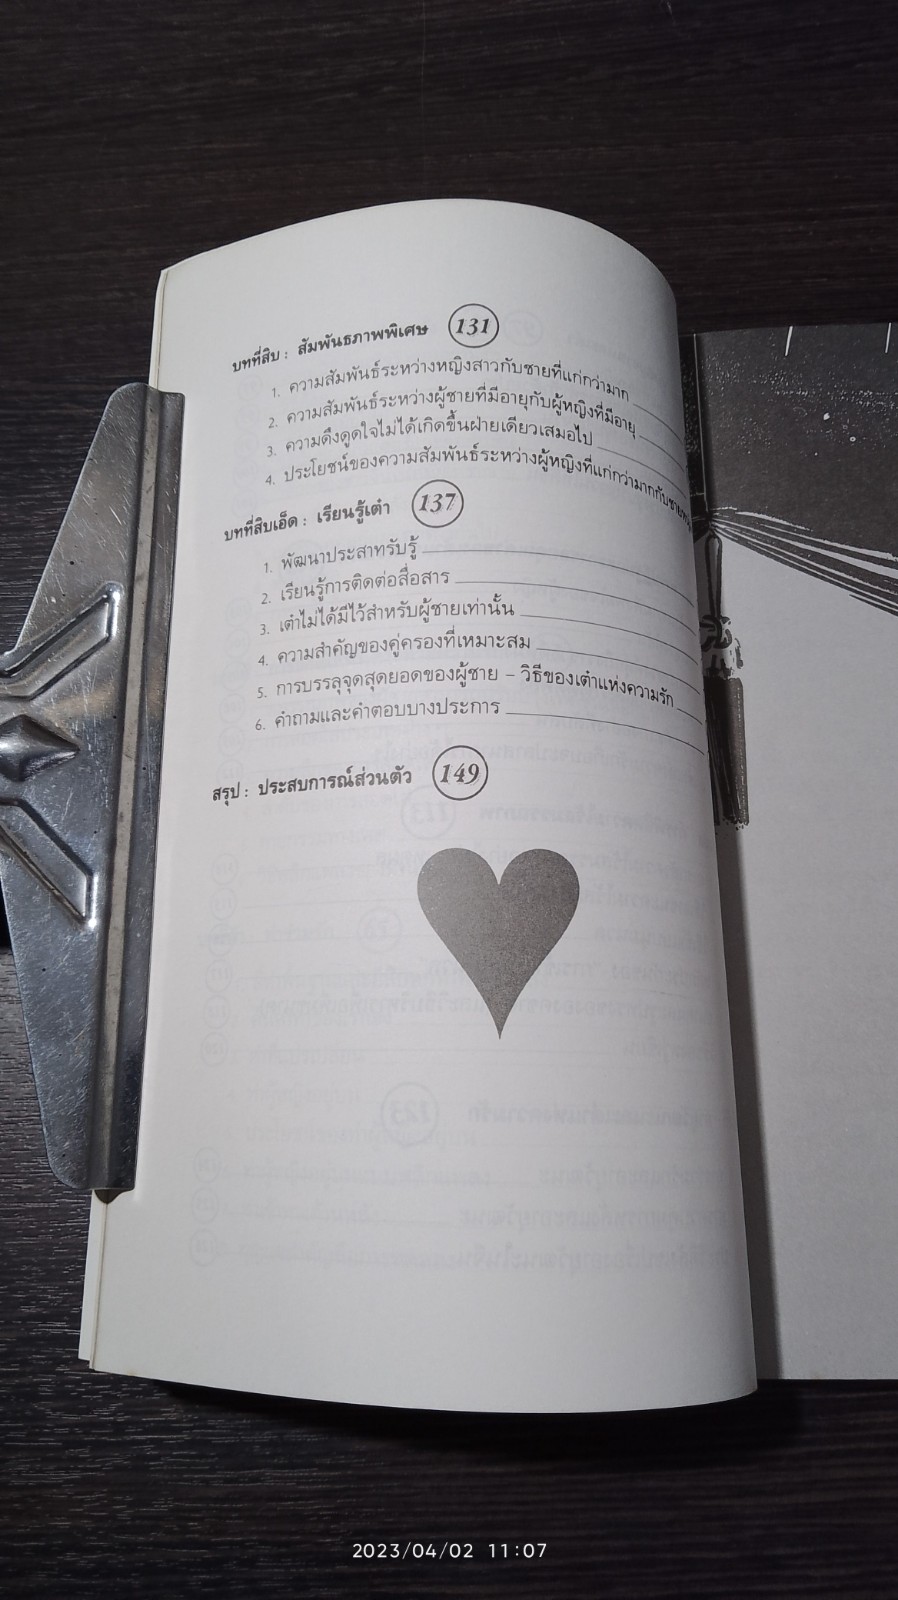 บทที่สิบ : สัมพันธภาพพิเศษ 131
1. ความสัมพันธ์ระหว่างหญิงสาวกับชายที่แก่กว่ามาก
2. ความสัมพันธ์ระหว่างผู้ชายที่มีอายุกับผู้หญิงที่มีอายุ
3. ความดึงดูดใจไม่ได้เกิดขึ้นฝ่ายเดียวเสมอไป
4. ประโยชน์ของความสัมพันธ์ระหว่างผู้หญิงที่แก่กว่ามากกับชาย
บทที่สิบเอ็ด : เรียนรู้เต๋า 137
1. พัฒนาประสาทรับรู้
2. เรียนรู้การติดต่อสื่อสาร
3. เต๋าไม่ได้มีไว้สำหรับผู้ชายเท่านั้น
4. ความสำคัญของคู่ครองที่เหมาะสม
5. การบรรลุจุดสุดยอดของผู้ชาย – วิธีของเต๋าแห่งความรัก
6. คำถามและคำตอบบางประการ
สรุป : ประสบการณ์ส่วนตัว 149
2023/04/02 11:07